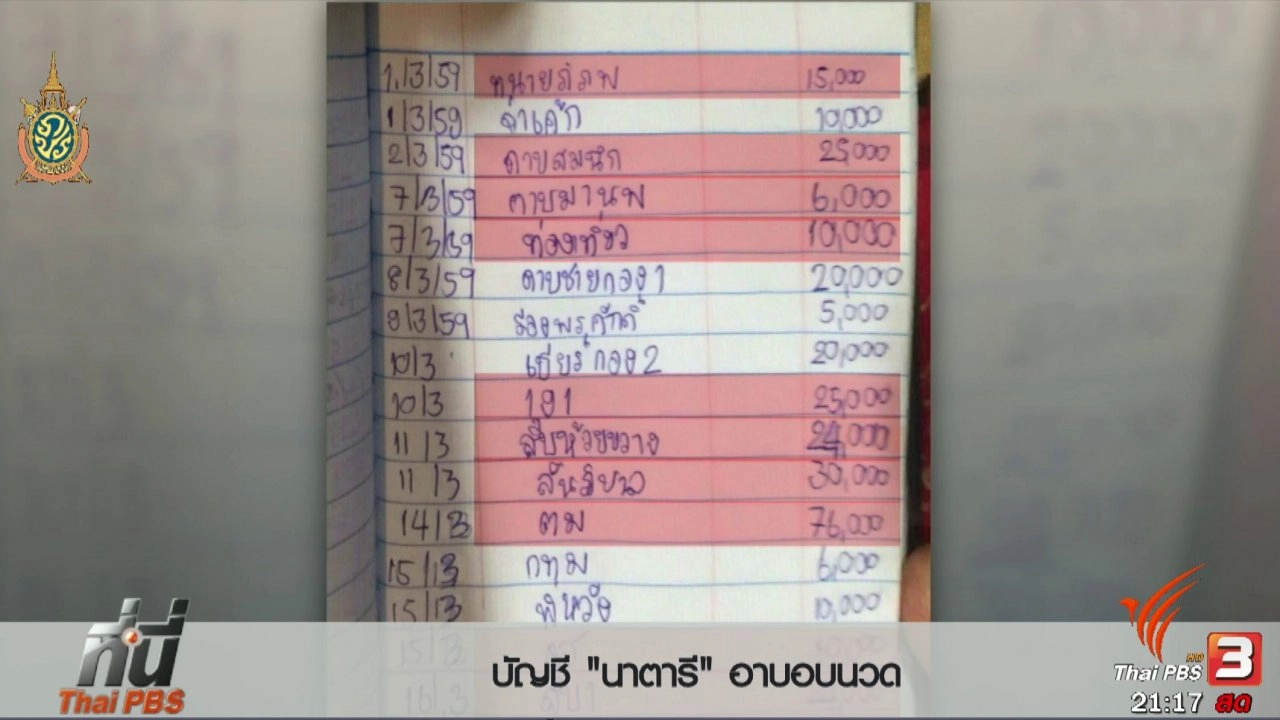 1/3/59 ทนายภ์ภพ 15,000
1/3/59 จ่าเค้ก 10,000
2/3/59 ดาบสมนึก 25,000
7/3/59 ดาบมานพ 6,000
7/3/59 ท่องเที่ยว 10,000
8/3/59 ดาบชายกอง 1 20,000
9/3/59 ร้องพรศักดิ์ 5,000
10/3 เธียรกอง 2 20,000
10/3 191 25,000
11/3 สืบห้วยขวาง 24,000
11/3 สันติบาล 30,000
14/3 ตม 76,000
15/3 กทม 6,000
15/3 พี่หวัง 10,000
15/3
16/3
บัญชี "นาตารี" อาบอบนวด
ที่นี่
Thai PBS
Thai PBS HD 3
21:17 สด